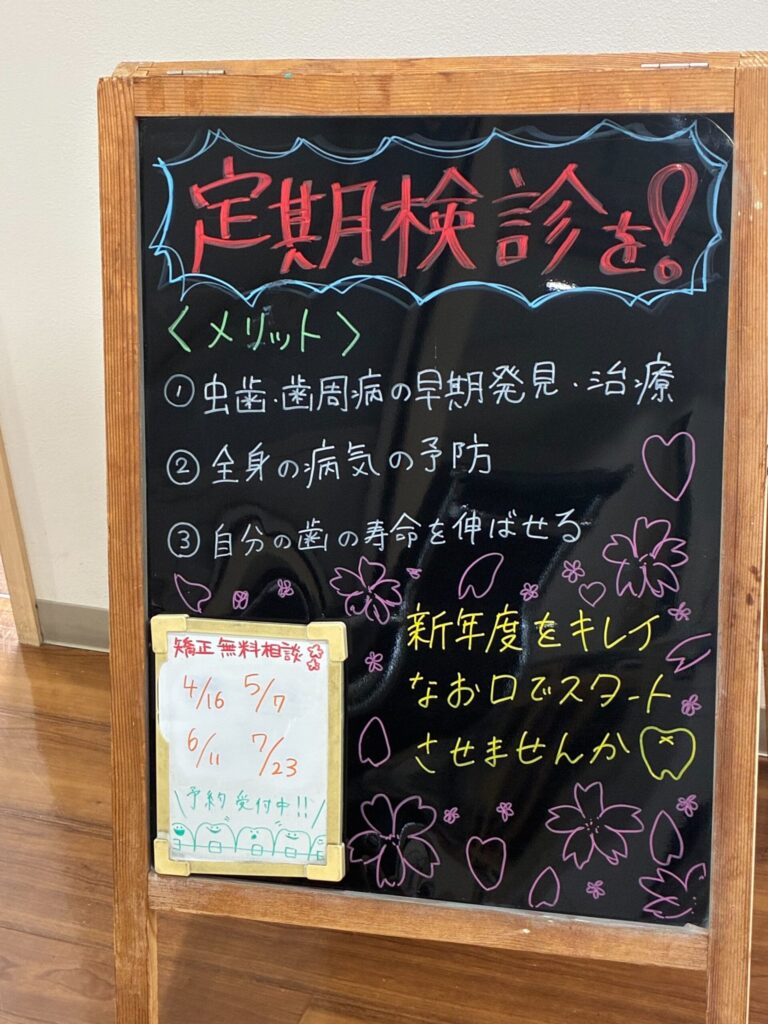 定期検診を!
〈メリット〉
① 虫歯・歯周病の早期発見・治療
② 全身の病気の予防
③ 自分の歯の寿命を伸ばせる
新年度をキレイ
なお口でスタート
させませんか
矯正無料相談
4/16 5/7
6/11 7/23
\予約受付中!!/